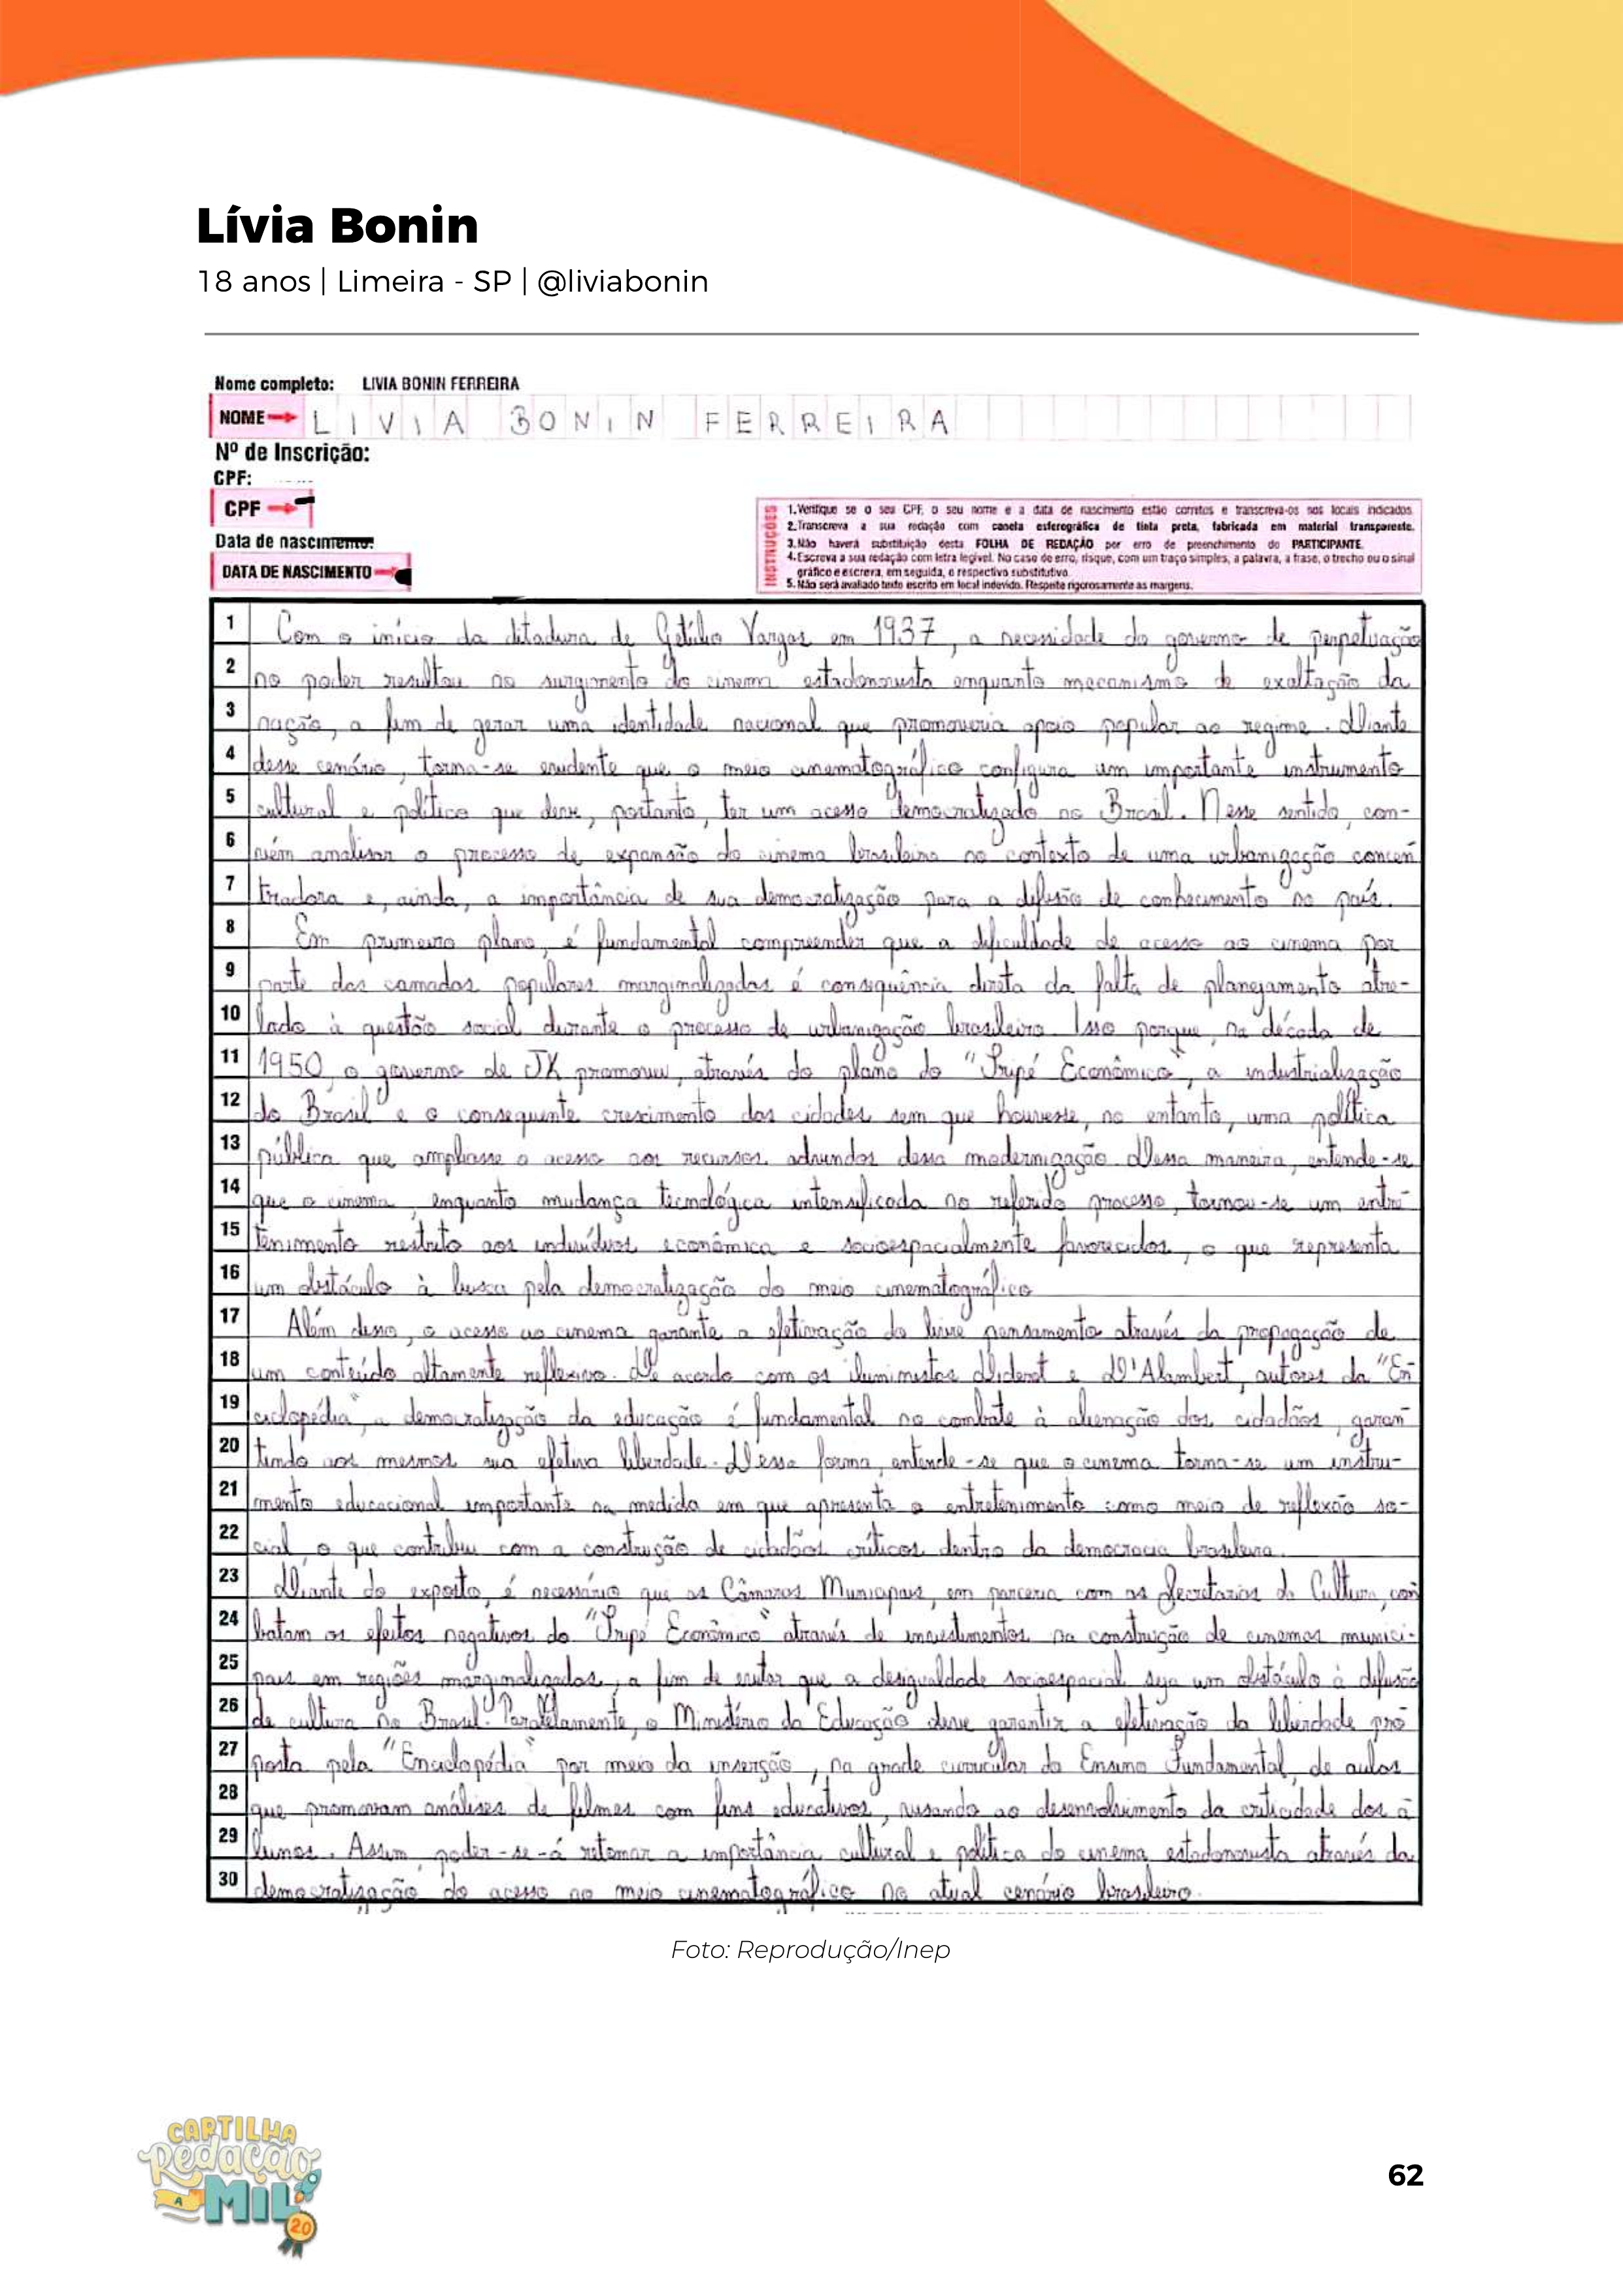 Lívia Bonin
18 anos | Limeira - SP | @liviabonin
Nome completo: LIVIA BONIN FERREIRA
NOME LIVIA BONIN FERREIRA
Nº de Inscrição:
CPF:
CPF
Data de nascimento:
DATA DE NASCIMENTO
INSTRUÇÕES
1. Verifique se o seu CPF, o seu nome e a data de nascimento estão corretos e transcreva-os nos locais indicados.
2. Transcreva a sua redação com caneta esferográfica de tinta preta, fabricada em material transparente.
3. Não haverá substituição desta FOLHA DE REDAÇÃO por erro de preenchimento do PARTICIPANTE.
4. Escreva a sua redação com letra legível. No caso de erro, risque, com um traço simples, a palavra, a frase, o trecho ou o sinal
gráfico e escreva, em seguida, o respectivo substitutivo.
5. Não será avaliado texto escrito em local indevido. Respeite rigorosamente as margens.
1 Com o início da ditadura de Getúlio Vargas em 1937, a necessidade do governo de perpetuação
2 no poder resultou no surgimento do cinema estadonovista enquanto mecanismo de exaltação da
3 nação, a fim de gerar uma identidade nacional que promoveria apoio popular ao regime. Diante
4 desse cenário, torna-se evidente que o meio cinematográfico configura um importante instrumento
5 cultural e político que deve, portanto, ter um acesso democratizado no Brasil. Nesse sentido, con-
6 vém analisar o processo de expansão do cinema brasileiro no contexto de uma urbanização concen
7 tradora e, ainda, a importância de sua democratização para a difusão de conhecimento no país.
8 Em primeiro plano, é fundamental compreender que a dificuldade de acesso ao cinema por
9 parte das camadas populares marginalizadas é consequência direta da falta de planejamento atre-
10 lado à questão social durante o processo de urbanização brasileiro. Isso porque, na década de
11 1950, o governo de JK promoveu, através do plano do "Tripé Econômico", a industrialização
12 do Brasil e o consequente crescimento das cidades sem que houvesse, no entanto, uma política
13 pública que ampliasse o acesso aos recursos advindos dessa modernização. Dessa maneira, entende-se
14 que o cinema, enquanto mudança tecnológica intensificada no referido processo, tornou-se um entre
15 tenimento restrito aos indivíduos econômica e socioespacialmente favorecidos, o que representa
16 um obstáculo à busca pela democratização do meio cinematográfico
17 Além disso, o acesso ao cinema garante a efetivação do livre pensamento através da propagação de
18 um conteúdo altamente reflexivo. De acordo com os iluministas Diderot e D'Alambert, autores da "En
19 ciclopédia", a democratização da educação é fundamental no combate à alienação dos cidadãos, garan
20 tindo aos mesmos sua efetiva liberdade. Dessa forma, entende-se que o cinema torna-se um instru-
21 mento educacional importante na medida em que apresenta o entretenimento como meio de reflexão so-
22 cial, o que contribui com a construção de cidadãos críticos dentro da democracia brasileira.
23 Diante do exposto, é necessário que as Câmaras Municipais, em parceria com as Secretarias da Cultura, com
24 batam os efeitos negativos do "Tripé Econômico" através de investimentos na construção de cinemas munici-
25 pais em regiões marginalizadas, a fim de evitar que a desigualdade socioespacial seja um obstáculo à difusão
26 de cultura no Brasil. Paralelamente, o Ministério da Educação deve garantir a efetivação da liberdade pro
27 posta pela "Enciclopédia" por meio da inserção, na grade curricular do Ensino Fundamental, de aulas
28 que promovam análises de filmes com fins educativos, visando ao desenvolvimento da criticidade dos a
29 lunos. Assim, poder-se-á retomar a importância cultural e política do cinema estadonovista através da
30 democratização do acesso ao meio cinematográfico no atual cenário brasileiro.
Foto: Reprodução/Inep
CARTILHA
Redação
A MIL
2.0
62